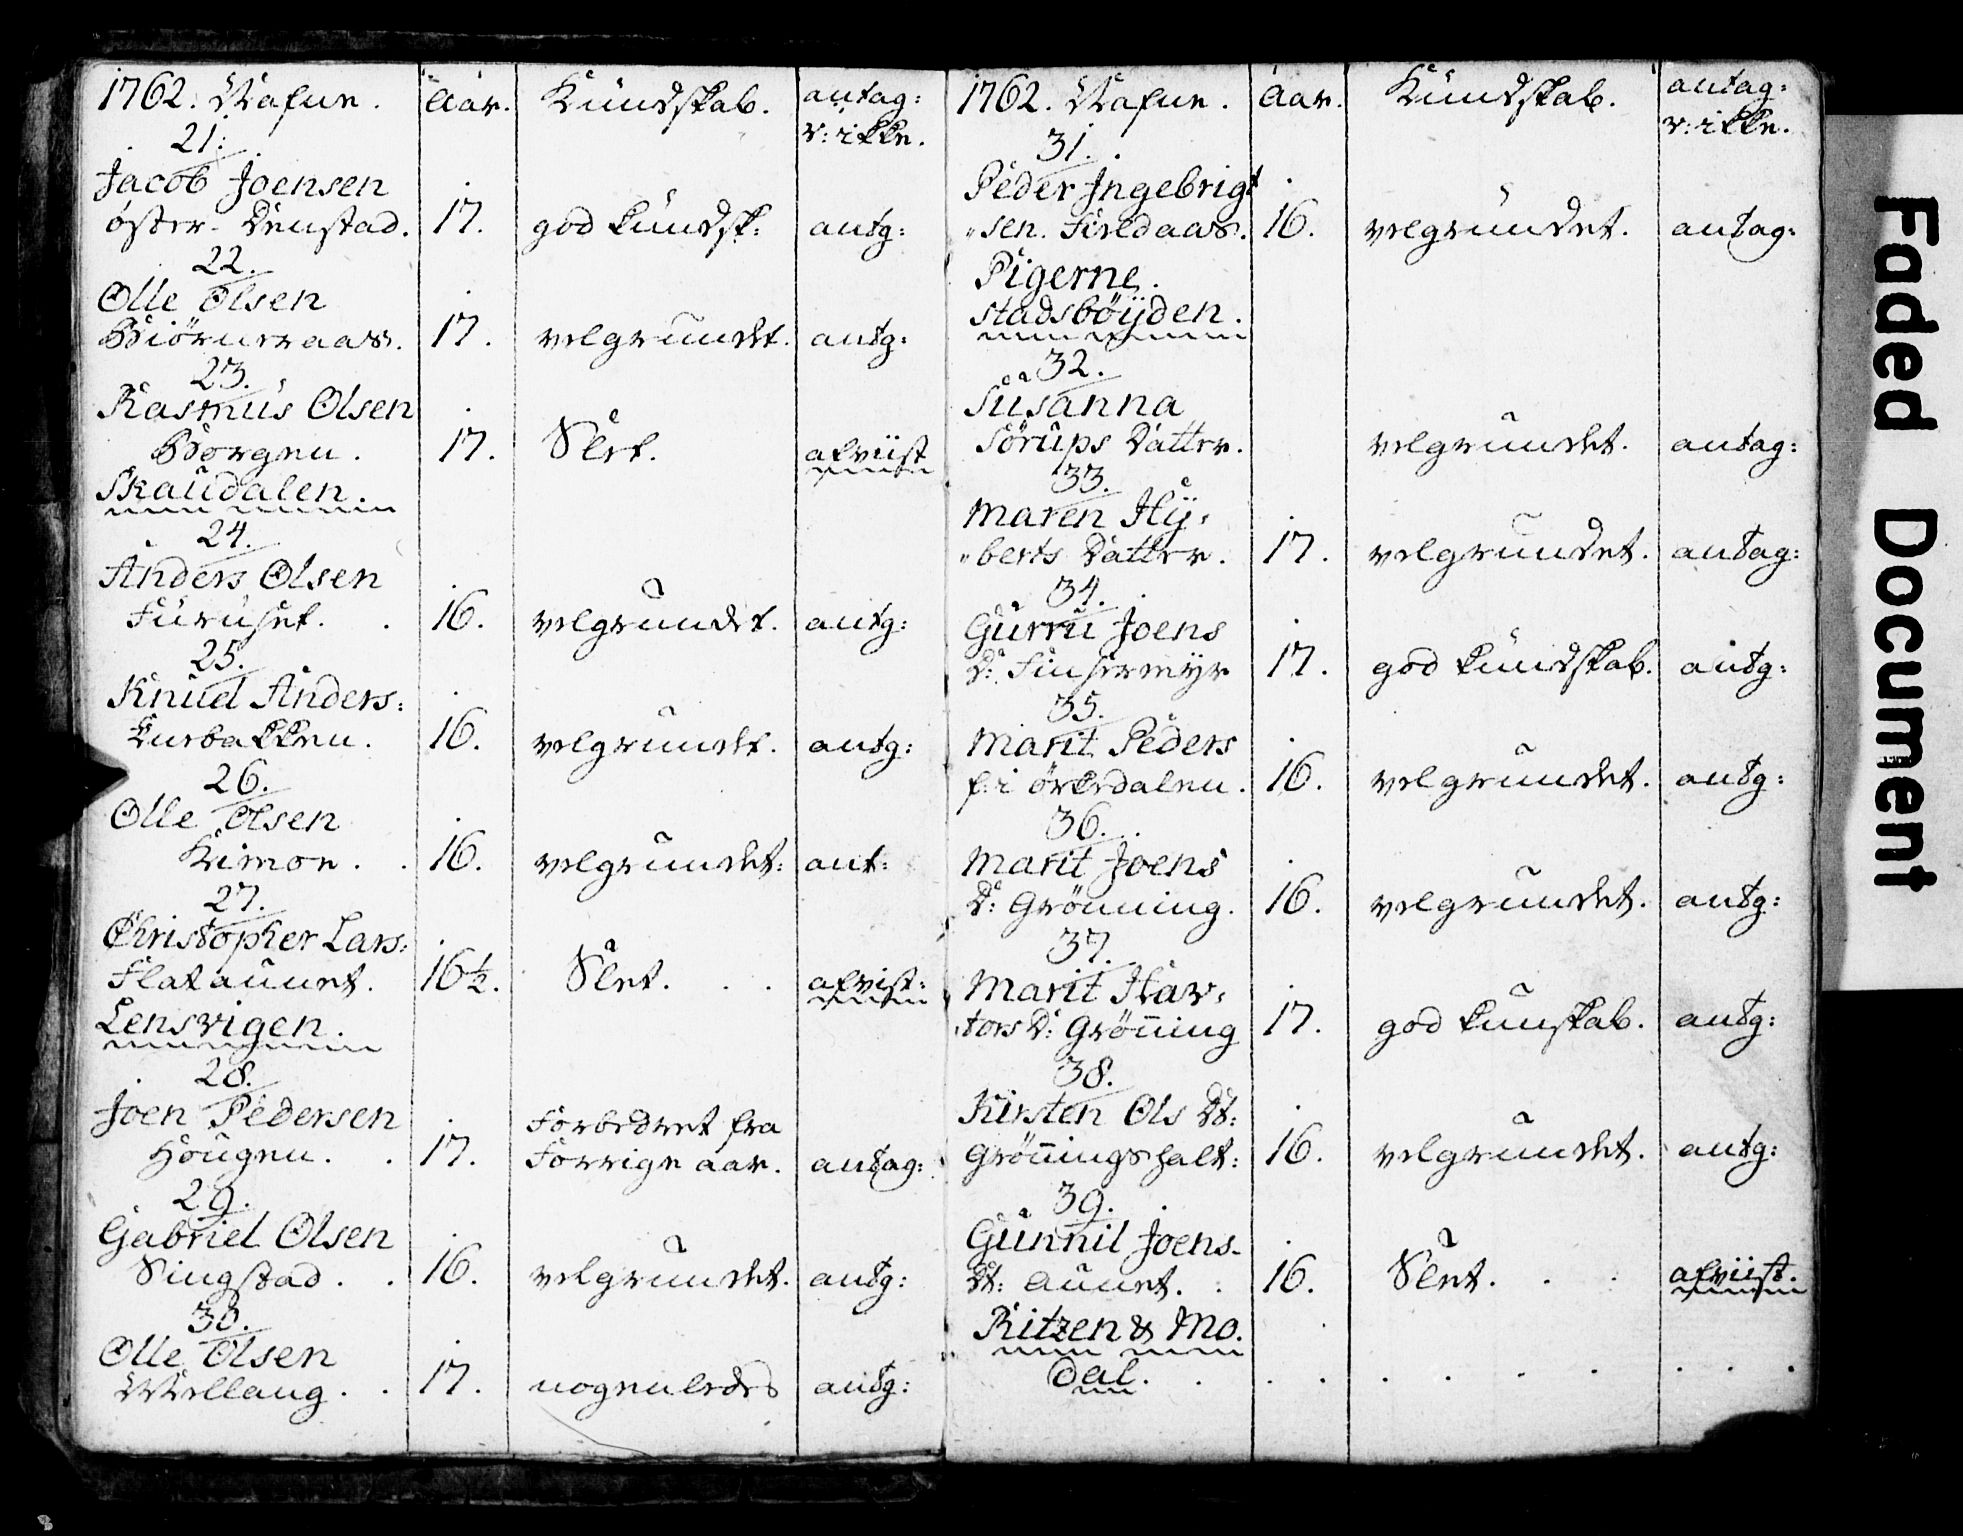 1762. Nafne. Aar. Kundskab. antag:
e: ikke.
21:
Jacob Joensen
öster-Denstad. 17. god kundsk: antg:
22.
Olle Olsen
Biörneraas. 17. velgrundet. antg:
23.
Rasmus Olsen
Borgen. 17. Slet. afviist
Skaudalen.
24.
Anders Olsen
Furuset. 16. velgrundet. antg:
25.
Knud Anders:
Kurbakken. 16. velgrundet. antg:
26.
Olle Olsen
Krimoen. 16. velgrundet: ant:
27.
Christopher Lars:
Flataunet. 16½. Slet. afvist:
Lensvigen.
28.
Joen Pedersen
Hougen. 17. Forbedret fra
Forrige aar. antag:
29.
Gabriel Olsen
Singstad. 16. velgrundet. antg:
30.
Olle Olsen
Wellang. 17. nogenledes antg:
1762. Nafne. Aar. Kundskab. antag:
e: ikke.
31.
Peder Ingebrigt
sen. Fieldaas. 16. velgrundet. antag:
Pigerne.
Stadsböÿden.
32.
Susanna
Sörups Datter. velgrundet. antag:
33.
Maren Hÿ:
berts Datter. 17. velgrundet. antag:
34.
Gurru Joens
D: Finsermÿr 17. god kundskab. antg:
35.
Marit Peders
f: i örkedalen. 16. velgrundet. antg:
36.
Marit Joens
D: Grönning. 16. velgrundet. antg:
37.
Marit Hav:
tors D: Gröning 17. god kunskab. antg:
38.
Kirsten Ols Dt:
Gröningshalt: 16. velgrundet. antg:
39.
Gunnil Joens-
Dt: Aunet. 16. Slet. afviist.
Ritzen & Mo.
dal.
Faded Document